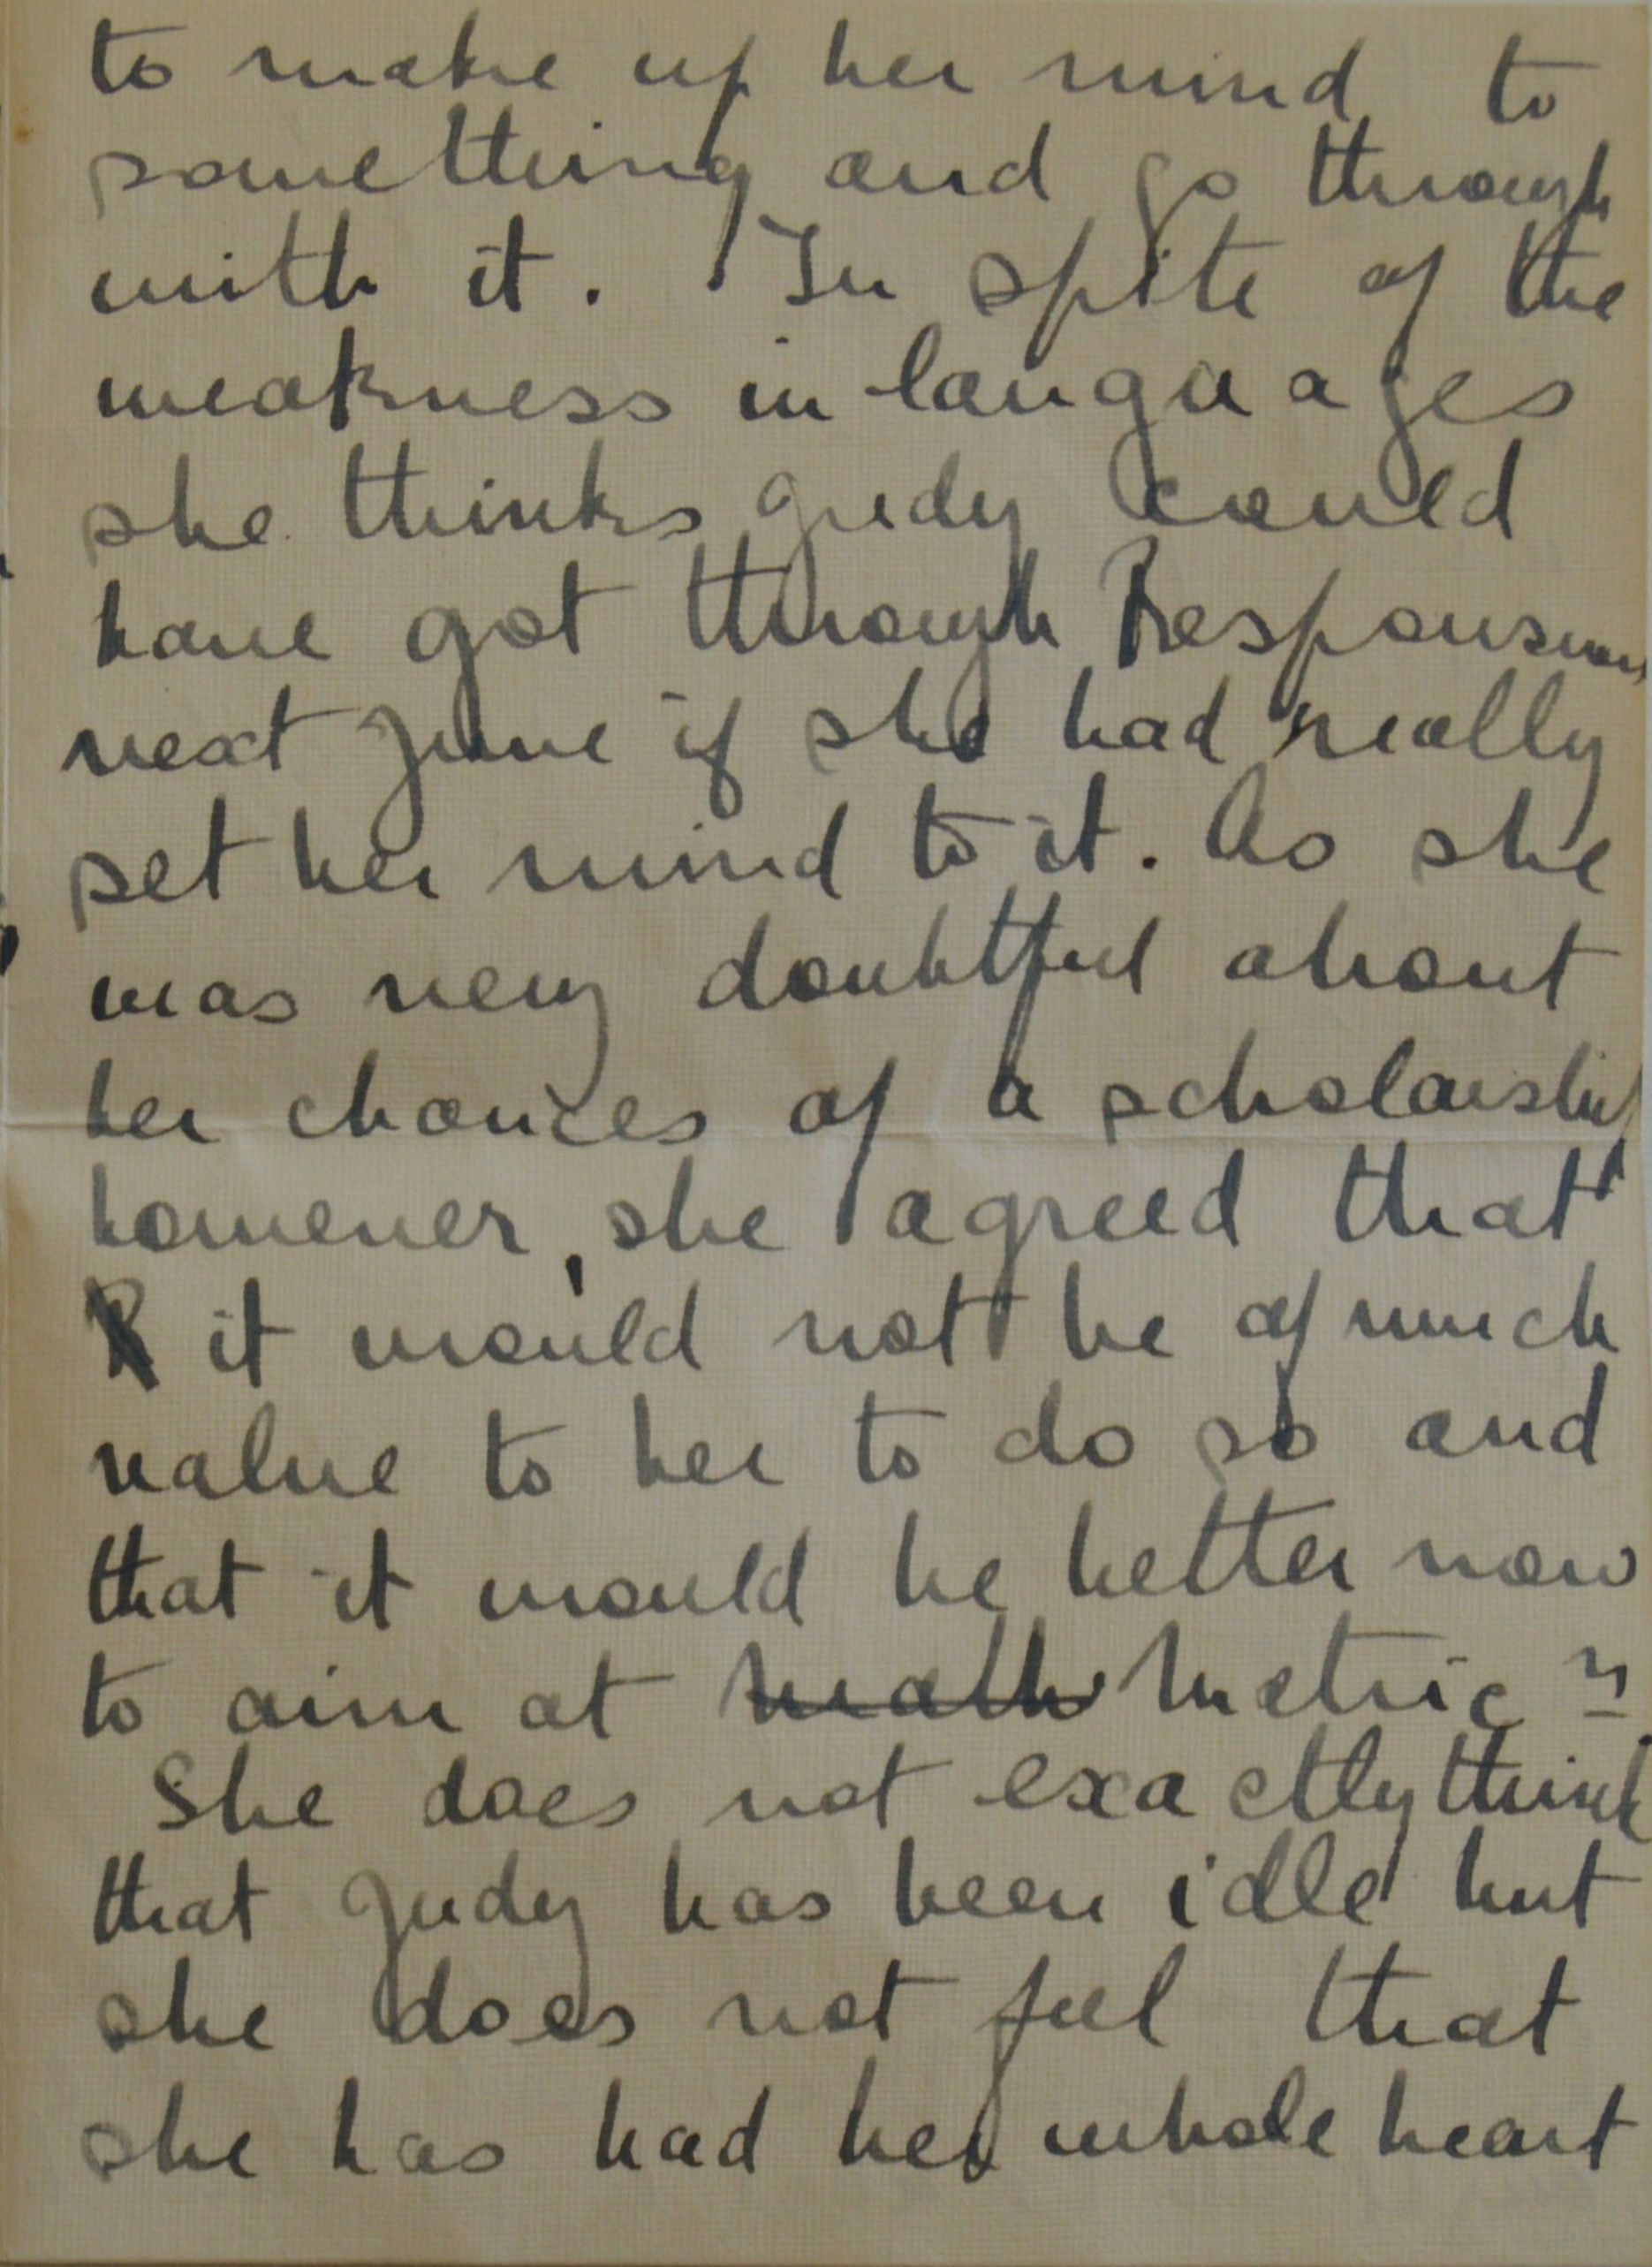 to make up her mind to
something and go through
with it. In spite of the
weakness in languages
she thinks Judy could
have got through Responsions
next June if she had really
set her mind to it. As she
was very doubtful about
her chances of a scholarship
however, she agreed that
it would not be of much
value to her to do so and
that it would be better now
to aim at math Metric n
She does not exactly think
that Judy has been idle but
she does not feel that
she has had her whole heart